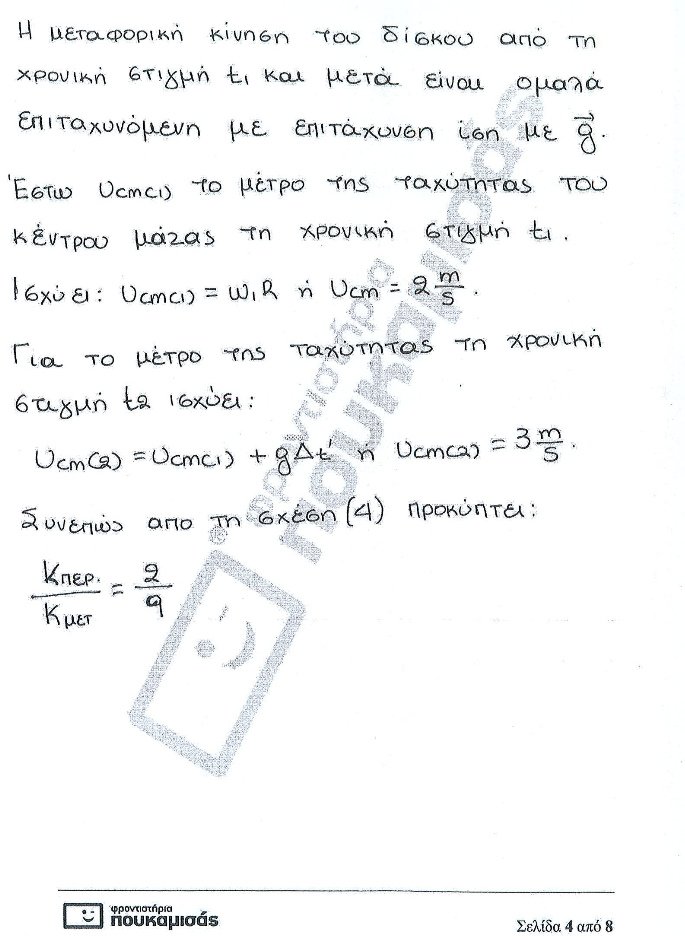 Η μεταφορική κίνηση του δίσκου από τη
χρονική στιγμή t₁ και μετά είναι ομαλά
επιταχυνόμενη με επιτάχυνση ίση με g⃗.
Έστω υcm(1) το μέτρο της ταχύτητας του
κέντρου μάζας τη χρονική στιγμή t₁.
Ισχύει: υcm(1) = ω₁R ή υcm = 2 m/s.
Για το μέτρο της ταχύτητας τη χρονική
στιγμή t₂ ισχύει:
υcm(2) = υcm(1) + gΔt' ή υcm(2) = 3 m/s.
Συνεπώς απο τη σχέση (4) προκύπτει:
Κπερ. / Κμετ = 2/9
φροντιστήρια
πουκαμισάς
®
φροντιστήρια
πουκαμισάς
Σελίδα 4 από 8